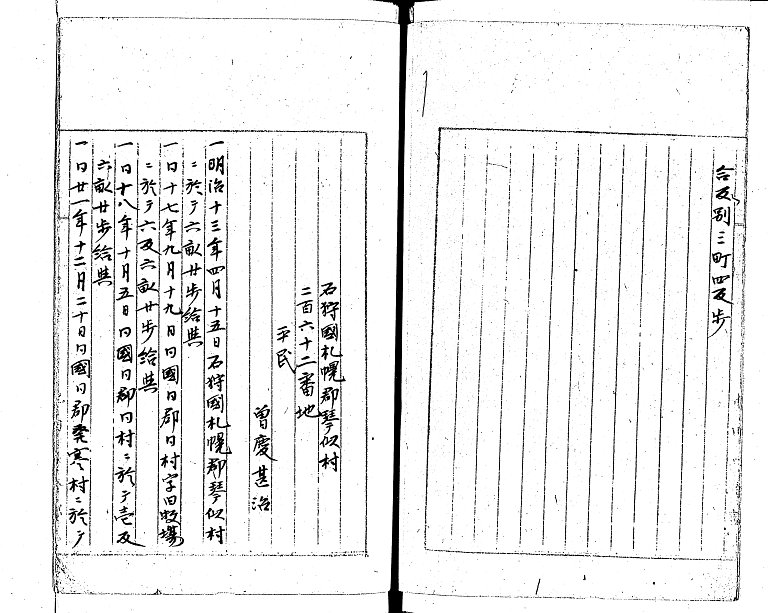 合反別三町四反歩
石狩國札幌郡琴似村
二百六十二番地
平民
曽慶甚治
一明治十三年四月十五日石狩國札幌郡琴似村
ニ於テ六畝廿歩給與
一同十七年九月十九日同國同郡同村字旧牧場
ニ於テ六反六畝廿歩給與
一同十八年十月五日同國同郡同村ニ於テ壱反
六畝廿歩給與
一同廿一年十二月二十日同國同郡発寒村ニ於テ